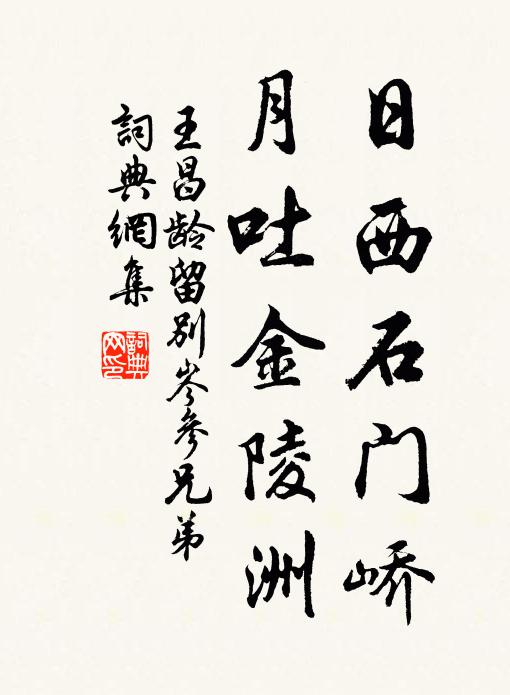 日西石门峤
月吐金陵洲
王昌龄留别岑参兄弟
詞典網集
詞典网印